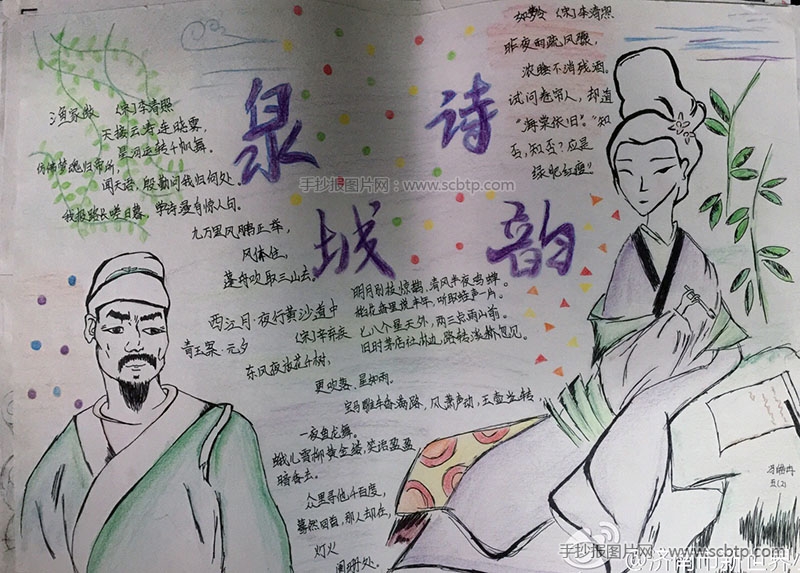 泉 诗
城 韵
渔家傲 (宋)李清照
天接云涛连晓雾,
星河转千帆舞。
仿佛梦魂归帝所,
闻天语,殷勤问我归何处。
我报路长嗟日暮,学诗惊人句。
九万里风鹏正举,
风休住,
蓬舟吹取三山去。
如梦令 (宋)李清照
昨夜雨疏风骤,
浓睡不消残酒。
试问卷帘人,却道
“海棠依旧。”“知
否,知否?应是
绿肥红瘦”
西江月·夜行黄沙道中
(宋)辛弃疾
明月别枝惊鹊,清风半夜鸣蝉。
稻花香里说丰年,听取蛙声一片。
七八个星天外,两三点雨山前。
旧时茅店社林边,路转溪桥忽见。
青玉案·元夕
东风夜放花千树,
更吹落、星如雨。
宝马雕车香满路,风萧声动,玉壶光转,
一夜鱼龙舞。
蛾儿雪柳黄金缕,笑语盈盈
暗香去。
众里寻他千百度,
蓦然回首,那人却在,
灯火
阑珊处。
手抄报图片网:www.scbtp.com
手抄报图片网:www.scbtp.com
@济南市新世界